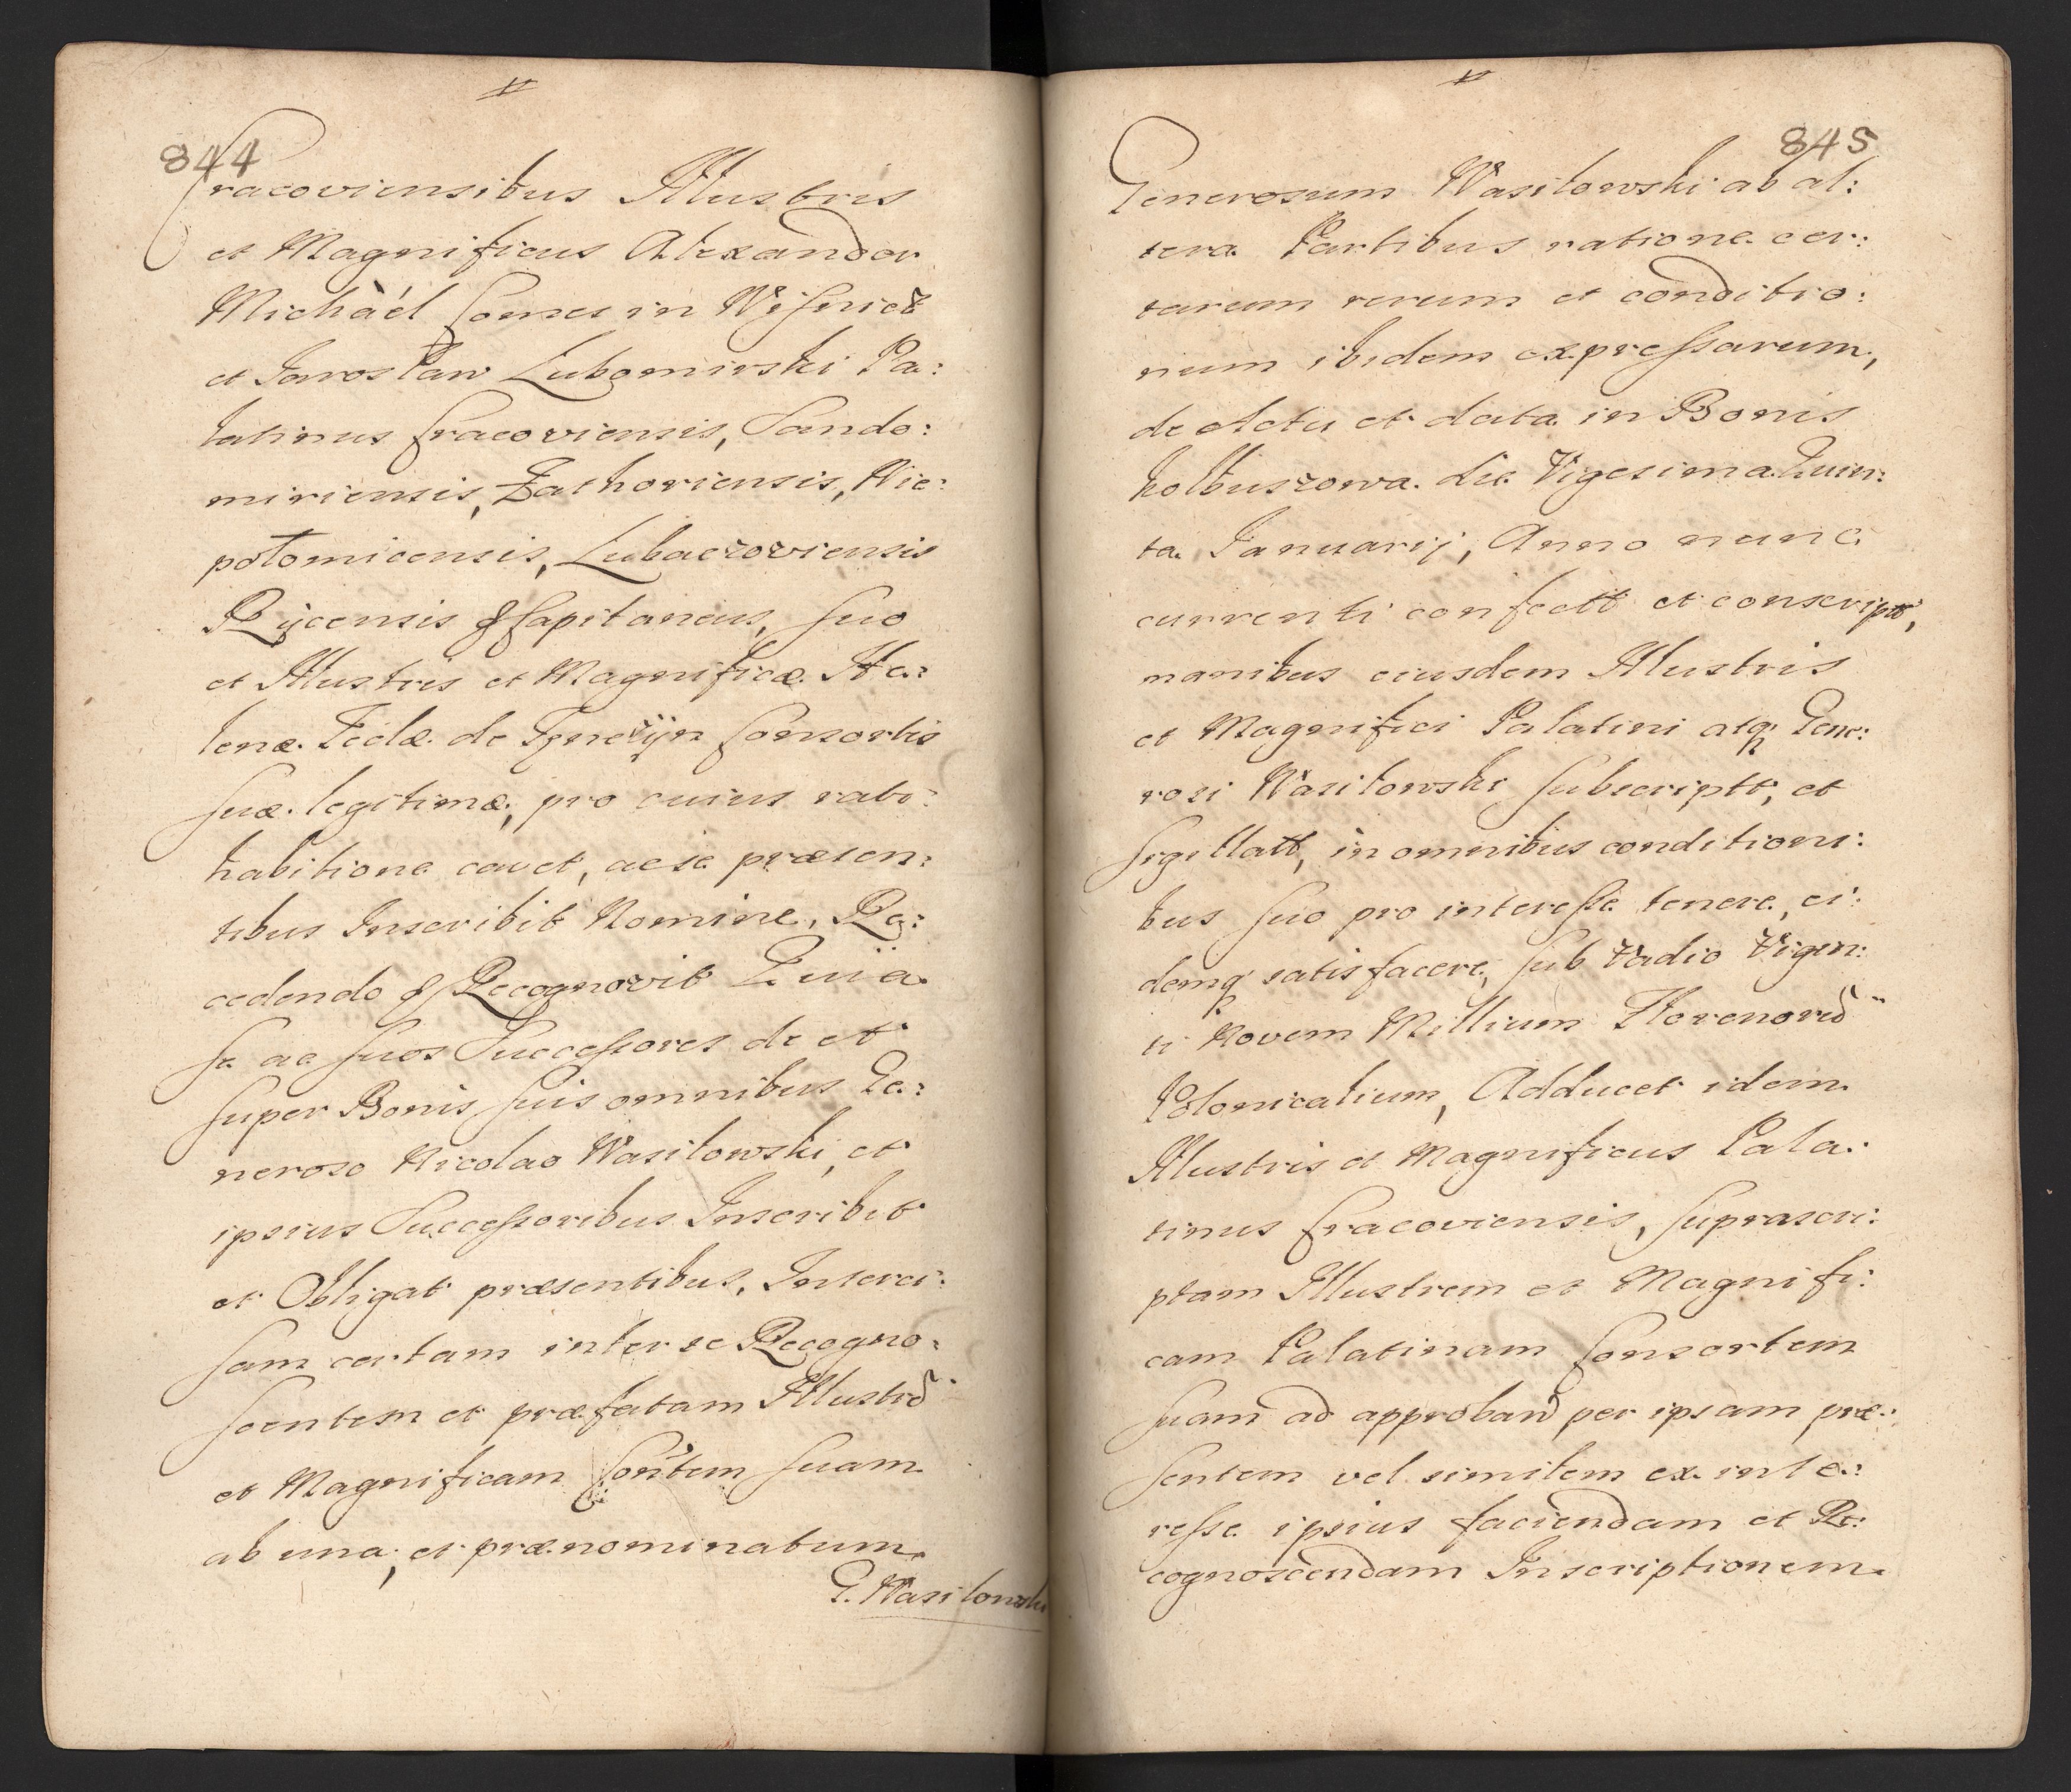 844
Cracoviensibus Illustris
et Magnificus Alexander
Michàél Comes in Wiśnicz
et Jarosław Lubomirski Pa:
latinus Cracoviensis, Sando:
miriensis, Zathoriensis, Nie:
połomicensis, Lubaczoviensis
Rÿcensis & Capitaneus, suo
et Illustris et Magnificæ He:
lenæ Teclæ de Tęnczÿn Consortis
suæ legitimæ, pro cuius rati:
habitione cavet, ac se præsen:
tibus Inscribit Nomine, Re:
cedendo & Recognovit Quia
se ac suos Successores de et
super Bonis suis omnibus Ge:
neroso Nicolao Wasilowski, et
ipsius Successoribus Inscribit
et Obligat præsentibus, Interci:
sam certam inter se Recogno:
scentem et præfatam Illustrem
et Magnificam Cons̃tem suam
ab una, et prænominatum
G. Wasilowski
845
Generosum Wasilowski ab al:
tera Partibus ratione cer:
tarum rerum et conditio:
num ibidem expressarum,
de Actu et data in Bonis
Kolbuszowa die Vigesima Quin:
ta Januarij, Anno nunc
currenti confectt et conscriptt,
manibus eiusdem Illustris
et Magnifici Palatini atq; Gene:
rosi Wasilowski subscriptt, et
sigillatt, in omnibus conditioni:
bus suo pro interesse tenere, ei:
demq satisfacere, sub Vadio Vigin:
ti Novem Millium Florenorũ
Polonicalium, Adducet idem
Illustris et Magnificus Pala:
tinus Cracoviensis, suprascri:
ptam Illustrem et Magnifi:
cam Palatinam Consortem
suam ad approband per ipsam præ:
sentem vel similem ex inte:
resse ipsius faciendam et Re:
cognoscendam Inscriptionem